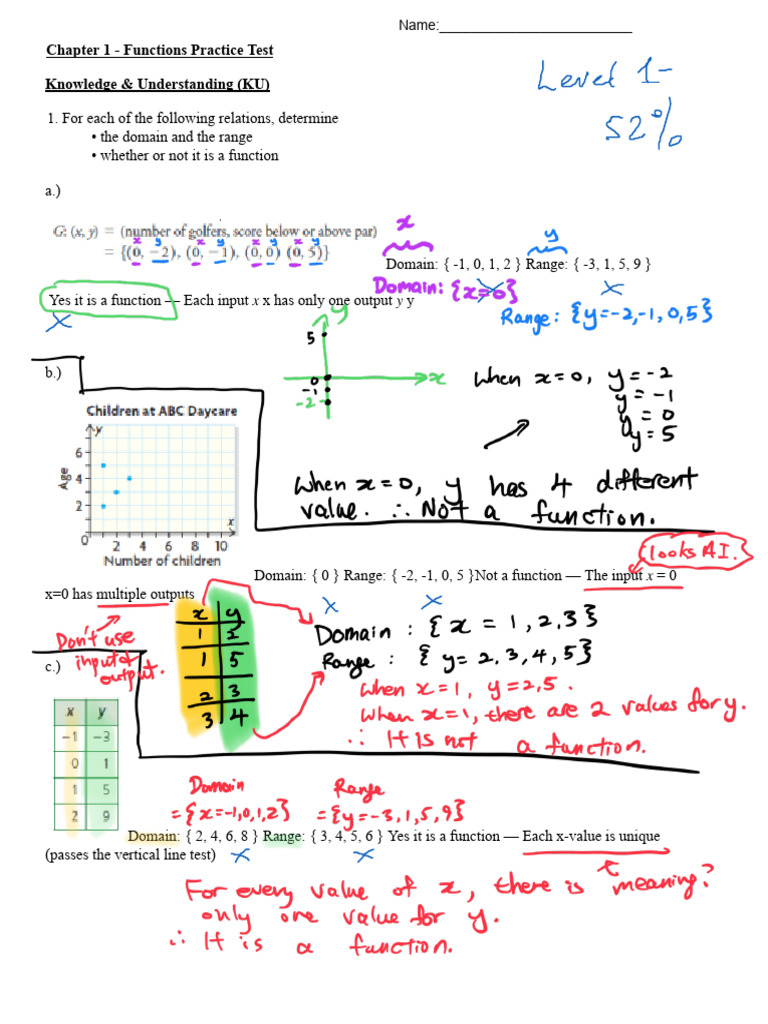 Name:
Chapter 1 - Functions Practice Test
Level 1-
52%
Knowledge & Understanding (KU)
1. For each of the following relations, determine
• the domain and the range
• whether or not it is a function
a.)
G: (x, y) = (number of golfers, score below or above par)
x y x y x y x y
= {(0, −2), (0, −1), (0, 0) (0, 5)}
x y
Domain: { -1, 0, 1, 2 } Range: { -3, 1, 5, 9 }
Domain: {x=0}
Yes it is a function — Each input x x has only one output y y
Range: {y=-2,-1,0,5}
y
5
0
-1
-2
x
b.)
When x=0, y=-2
y=-1
y=0
y=5
Children at ABC Daycare
y
6
4
2
0
Age
x
2 4 6 8 10
Number of children
When x=0, y has 4 different
value. ∴ Not a function.
looks AI.
Domain: { 0 } Range: { -2, -1, 0, 5 }Not a function — The input x = 0
x=0 has multiple outputs
Don't use
input & output.
x y
1 2
1 5
2 3
3 4
Domain : {x = 1,2,3}
Range : { y= 2,3,4,5}
When x=1, y=2,5.
When x=1, there are 2 values for y.
∴ It is not a function.
c.)
x y
−1 −3
0 1
1 5
2 9
Domain
={x=-1,0,1,2}
Range
={y=-3,1,5,9}
Domain: { 2, 4, 6, 8 } Range: { 3, 4, 5, 6 } Yes it is a function — Each x-value is unique
(passes the vertical line test)
meaning?
For every value of x, there is
only one value for y.
∴ It is a function.